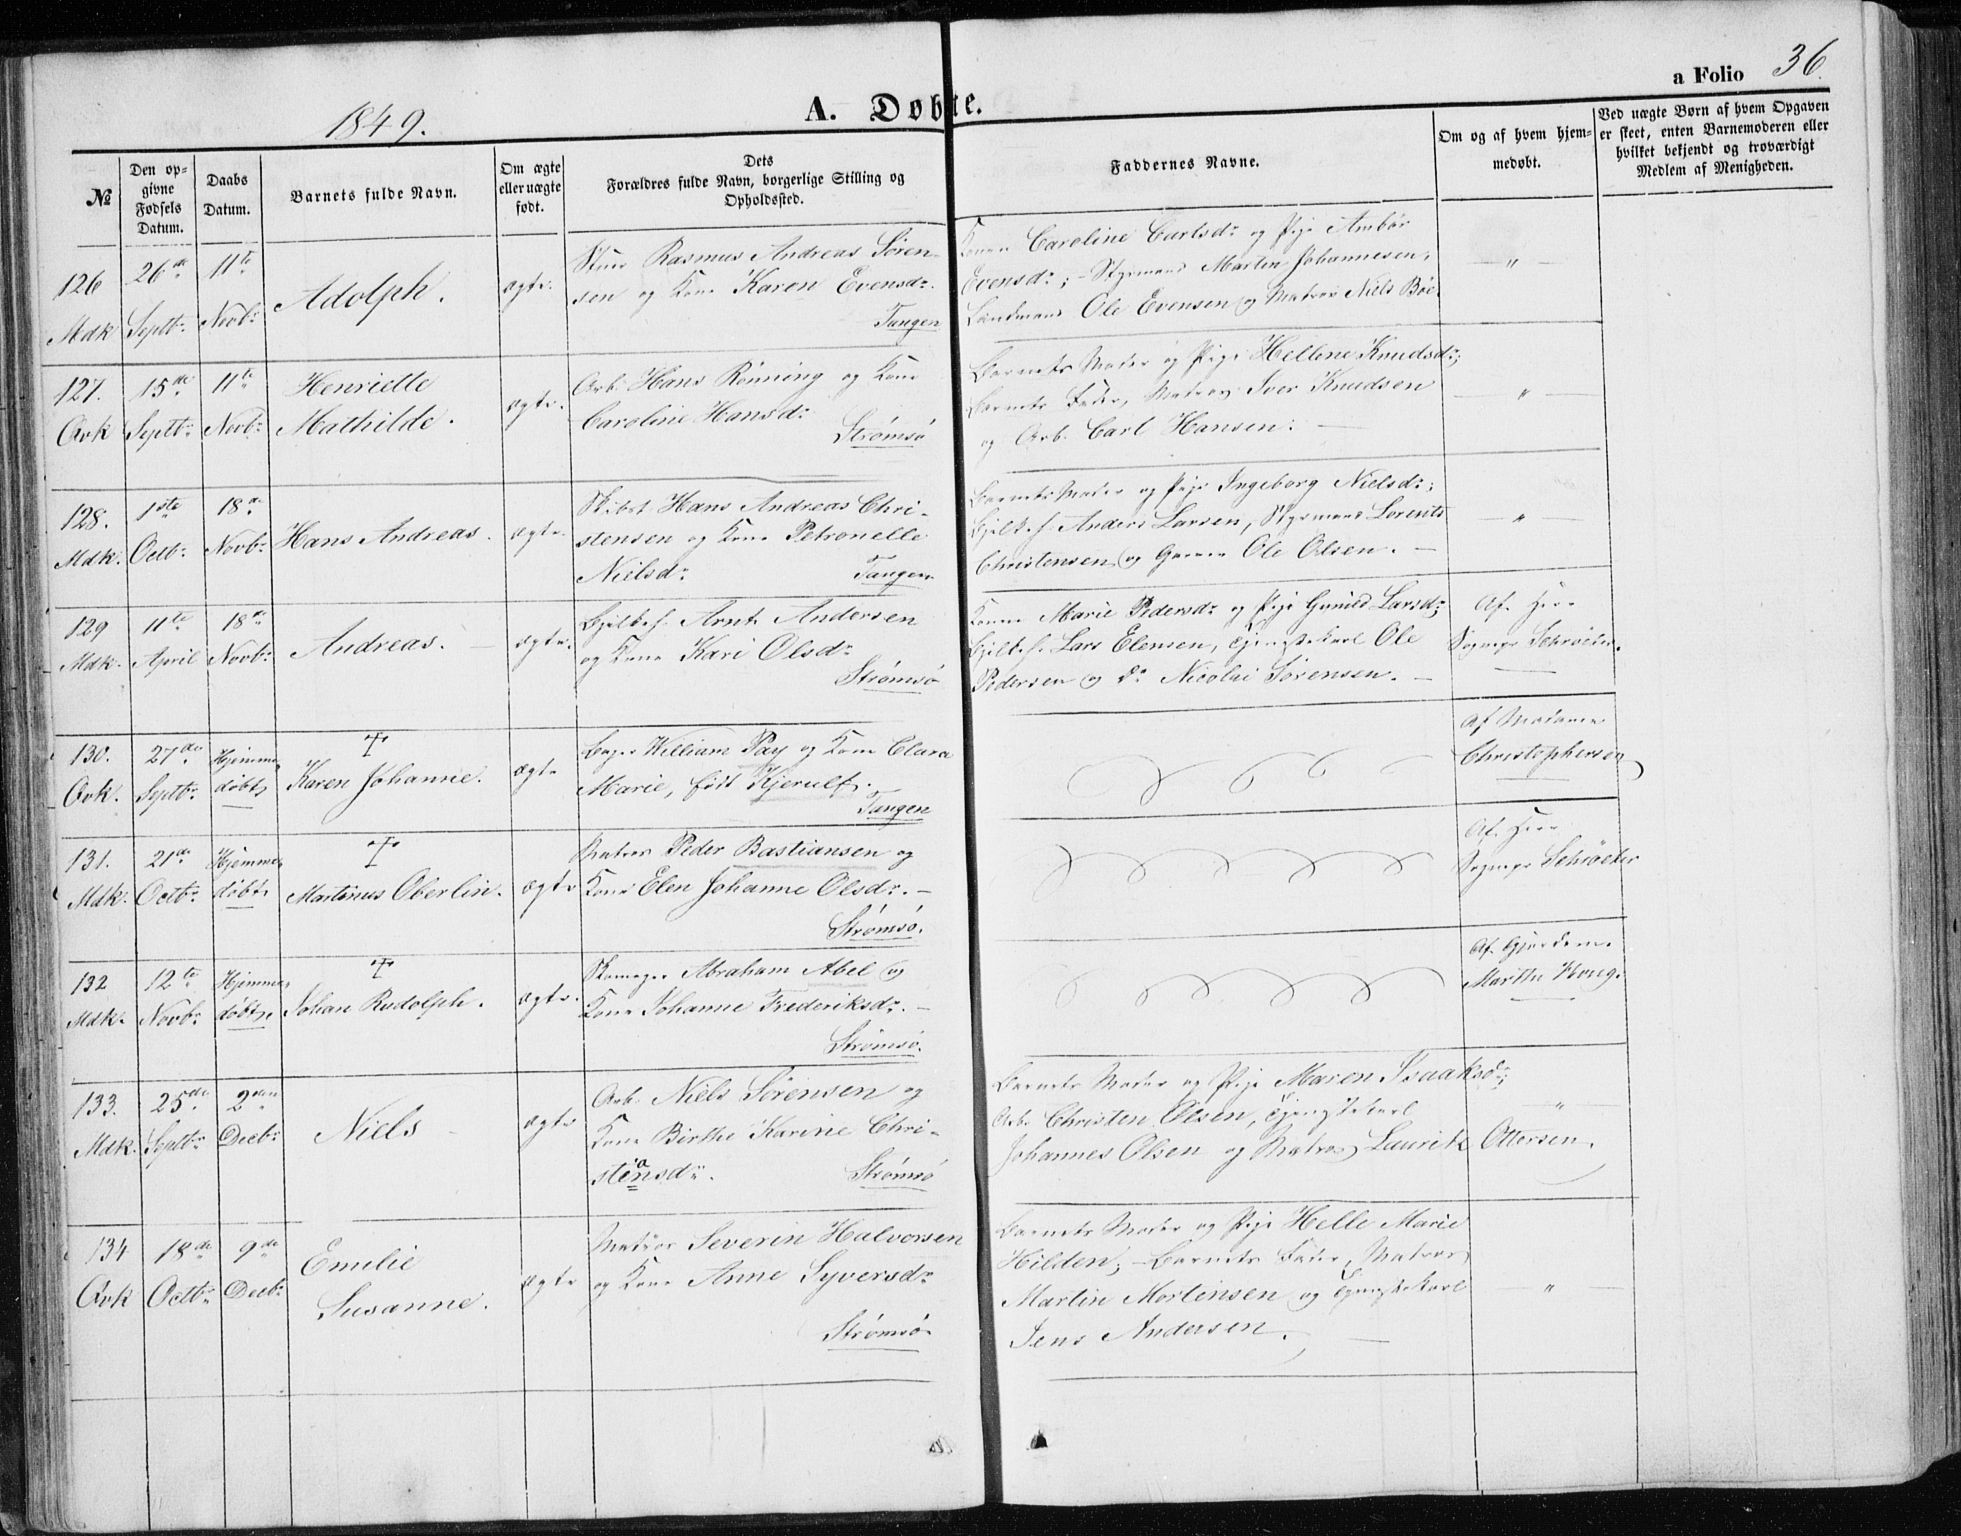 1849.
A. Døbte.
a Folio 36.
№
Den opgivne Fødsels Datum.
Daabs Datum.
Barnets fulde Navn.
Om ægte eller uægte født.
Dets Forældres fulde Navn, borgerlige Stilling og Opholdssted.
Faddernes Navne.
Om og af hvem hjemmedøbt.
Ved uægte Børn af hvem Opgaven er skeet, enten Barnemoderen eller hvilket bekjendt og troværdigt Medlem af Menigheden.
126 Mdk
26de Septbr.
11te Novbr.
Adolph.
ægte.
Rasmus Andreas Søren-
sen og Kone Karen Evensdr.
Tangen
Konen Caroline Carlsdr. og Pige Ambør
Evensdr.; Styrmand Martin Johannesen,
Landmand Ole Evensen og Matros Niels Böe.
"
127. Qvk
15de Septbr.
11te Novbr.
Henriette
Mathilde.
ægte.
Arb. Hans Rønning og Kone
Caroline Hansdr.
Strømsø
Barnets Moder og Pige Hellene Knudsdr;
Barnets Fader, Matros Iver Knudsen
og Arb. Carl Hansen.
"
128. Mdk.
1ste Octbr.
18de Novbr.
Hans Andreas.
ægte.
Skibst. Hans Andreas Chri-
stensen og Kone Petronelle
Nielsdr.
Tangen
Barnets Moder og Pige Ingeborg Nielsdr.;
Anders Larsen, Styrmand Lorents
Christensen og Ole Olsen.
"
129 Mdk.
11te April
18de Novbr.
Andreas.
ægte.
Arnt Andersen
og Kone Kari Olsdr.
Strømsø
Konen Marie Pedersdr. og Pige Gunild Larsdr;
Lars Elensen, Tjenestekarl Ole
Pedersen og Do Nicolai Sørensen.
Af Herr
Sognepr Schrøeter.
130. Qvk.
27de Septbr.
Hjemme
døbt
†
Karen Johanne.
ægte
Bager William Pay og Kone Clara
Marie, født Kjerulf.
Tangen
Af Madame
Christophersen
131. Mdk.
21de Octbr.
Hjemme
døbt
†
Martinus Oberlin.
ægte
Matros Peder Bastiansen og
Kone Elen Johanne Olsdr.
Strømsø.
Af Herr
Sognepr Schrøeter
132 Mdk.
12te Novbr
Hjemme
døbt.
†
Johan Rudolph.
ægte.
Skomager Abraham Abel og
Kone Johanne Frederiksdr.
Strømsø.
Af Gjordem.
Marthe Houg.
133. Mdk.
25de Septbr
2den Decbr.
Niels
ægte
Arb. Niels Sørensen og
Kone Birthe Karine Chri-
stensdr.
Strømsø
Barnets Moder og Pige Maren Isaaksdr;
Arb. Christen Olsen, Tjenestekarl
Johannes Olsen og Matros Laurits Ottersen.
"
134 Qvk
18de Octbr.
9de Decbr.
Emilie
Susanne.
ægte
Matros Severin Halvorsen
og Kone Anne Syversdr.
Strømsø
Barnets Moder og Pige Helle Marie
Hilden; Barnets Fader, Matros
Martin Mortensen og Tjenestekarl
Jens Andersen.
"